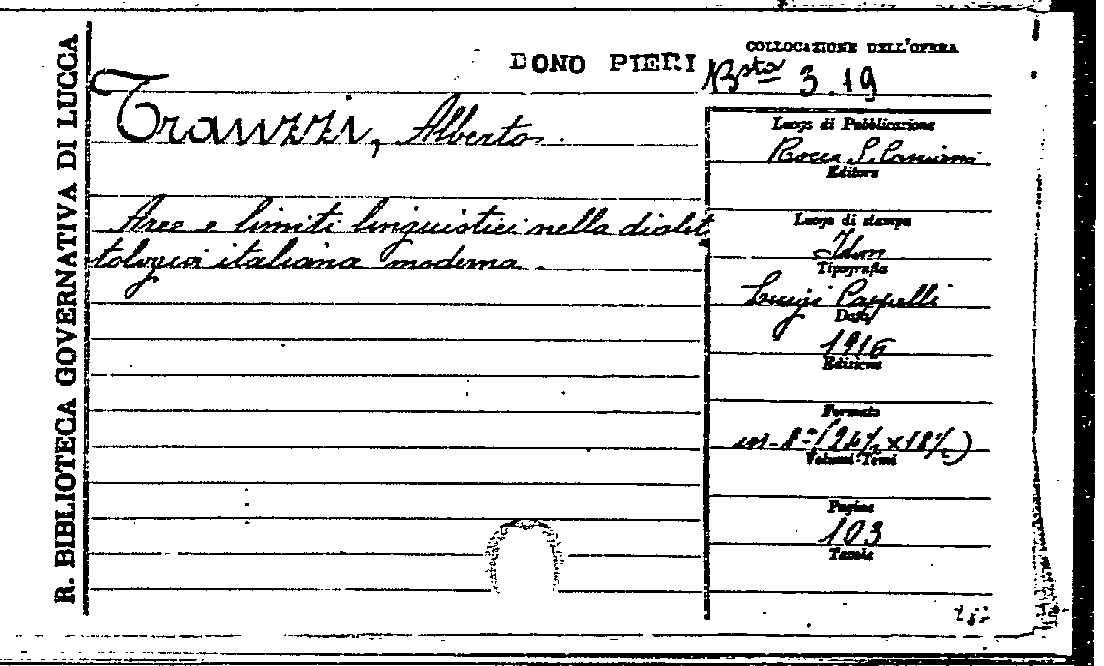 R. BIBLIOTECA GOVERNATIVA DI LUCCA
DONO PIERI
COLLOCAZIONE DELL'OPERA
Bsta 3.19
Trauzzi, Alberto.
Aree e limiti linguistici nella dialet
tologia italiana moderna.
Luogo di Pubblicazione
Rocca S. Casciano
Editore
Luogo di stampa
Idem
Tipografia
Luigi Cappelli
Data
1916
Edizione
Formato
in-8° (24½ x 18½)
Volumi-Tomi
Pagine
103
Tavole